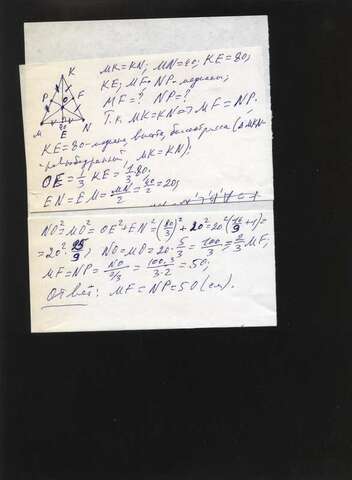 K
P F
O
M E N
20
MK=KN; MN=40; KE=80;
KE; MF; NP-медианы;
MF=? NP=?
Т.к. MK=KN⇒MF=NP.
KE=80-медиана, высота, биссектриса (ΔMKN-
"равнобедренный", MK=KN).
OE=1/3 KE=1/3·80.
EN=EM=MN/2=40/2=20;
NO²=MO²=OE²+EN²=(80/3)²+20²=20²(16/9+1)=
=20²·25/9; NO=MO=20·5/3=100/3=2/3 MF;
MF=NP=NO/2/3=100·3/3·2=50;
Ответ: MF=NP=50(см).